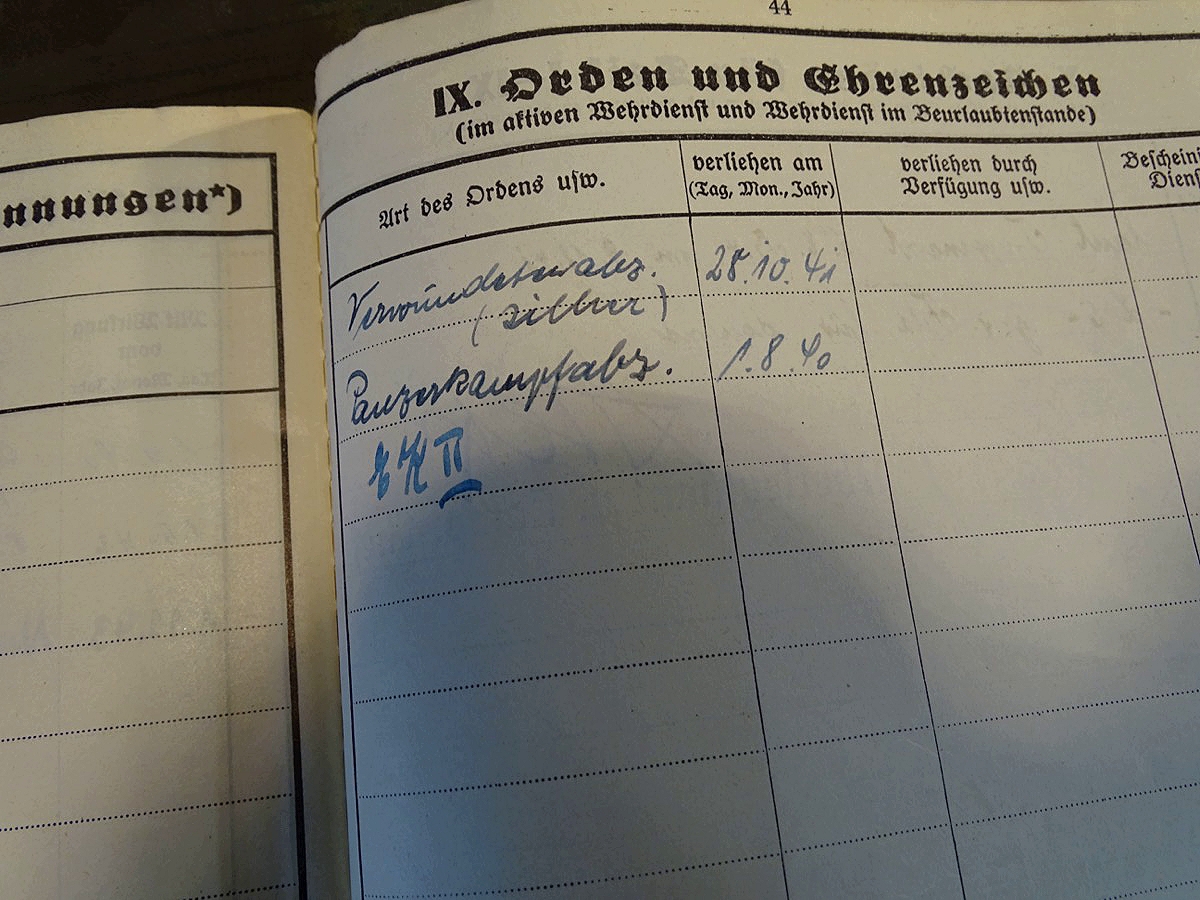 44
nnungen*)
IX. Orden und Ehrenzeichen
(im aktiven Wehrdienst und Wehrdienst im Beurlaubtenstande)
Art des Ordens usw.
verliehen am
(Tag, Mon., Jahr)
verliehen durch
Verfügung usw.
Bescheini
Dienst
Verwundetenabz. 28.10.41
(silber)
Panzerkampfabz. 1.8.40
EK II